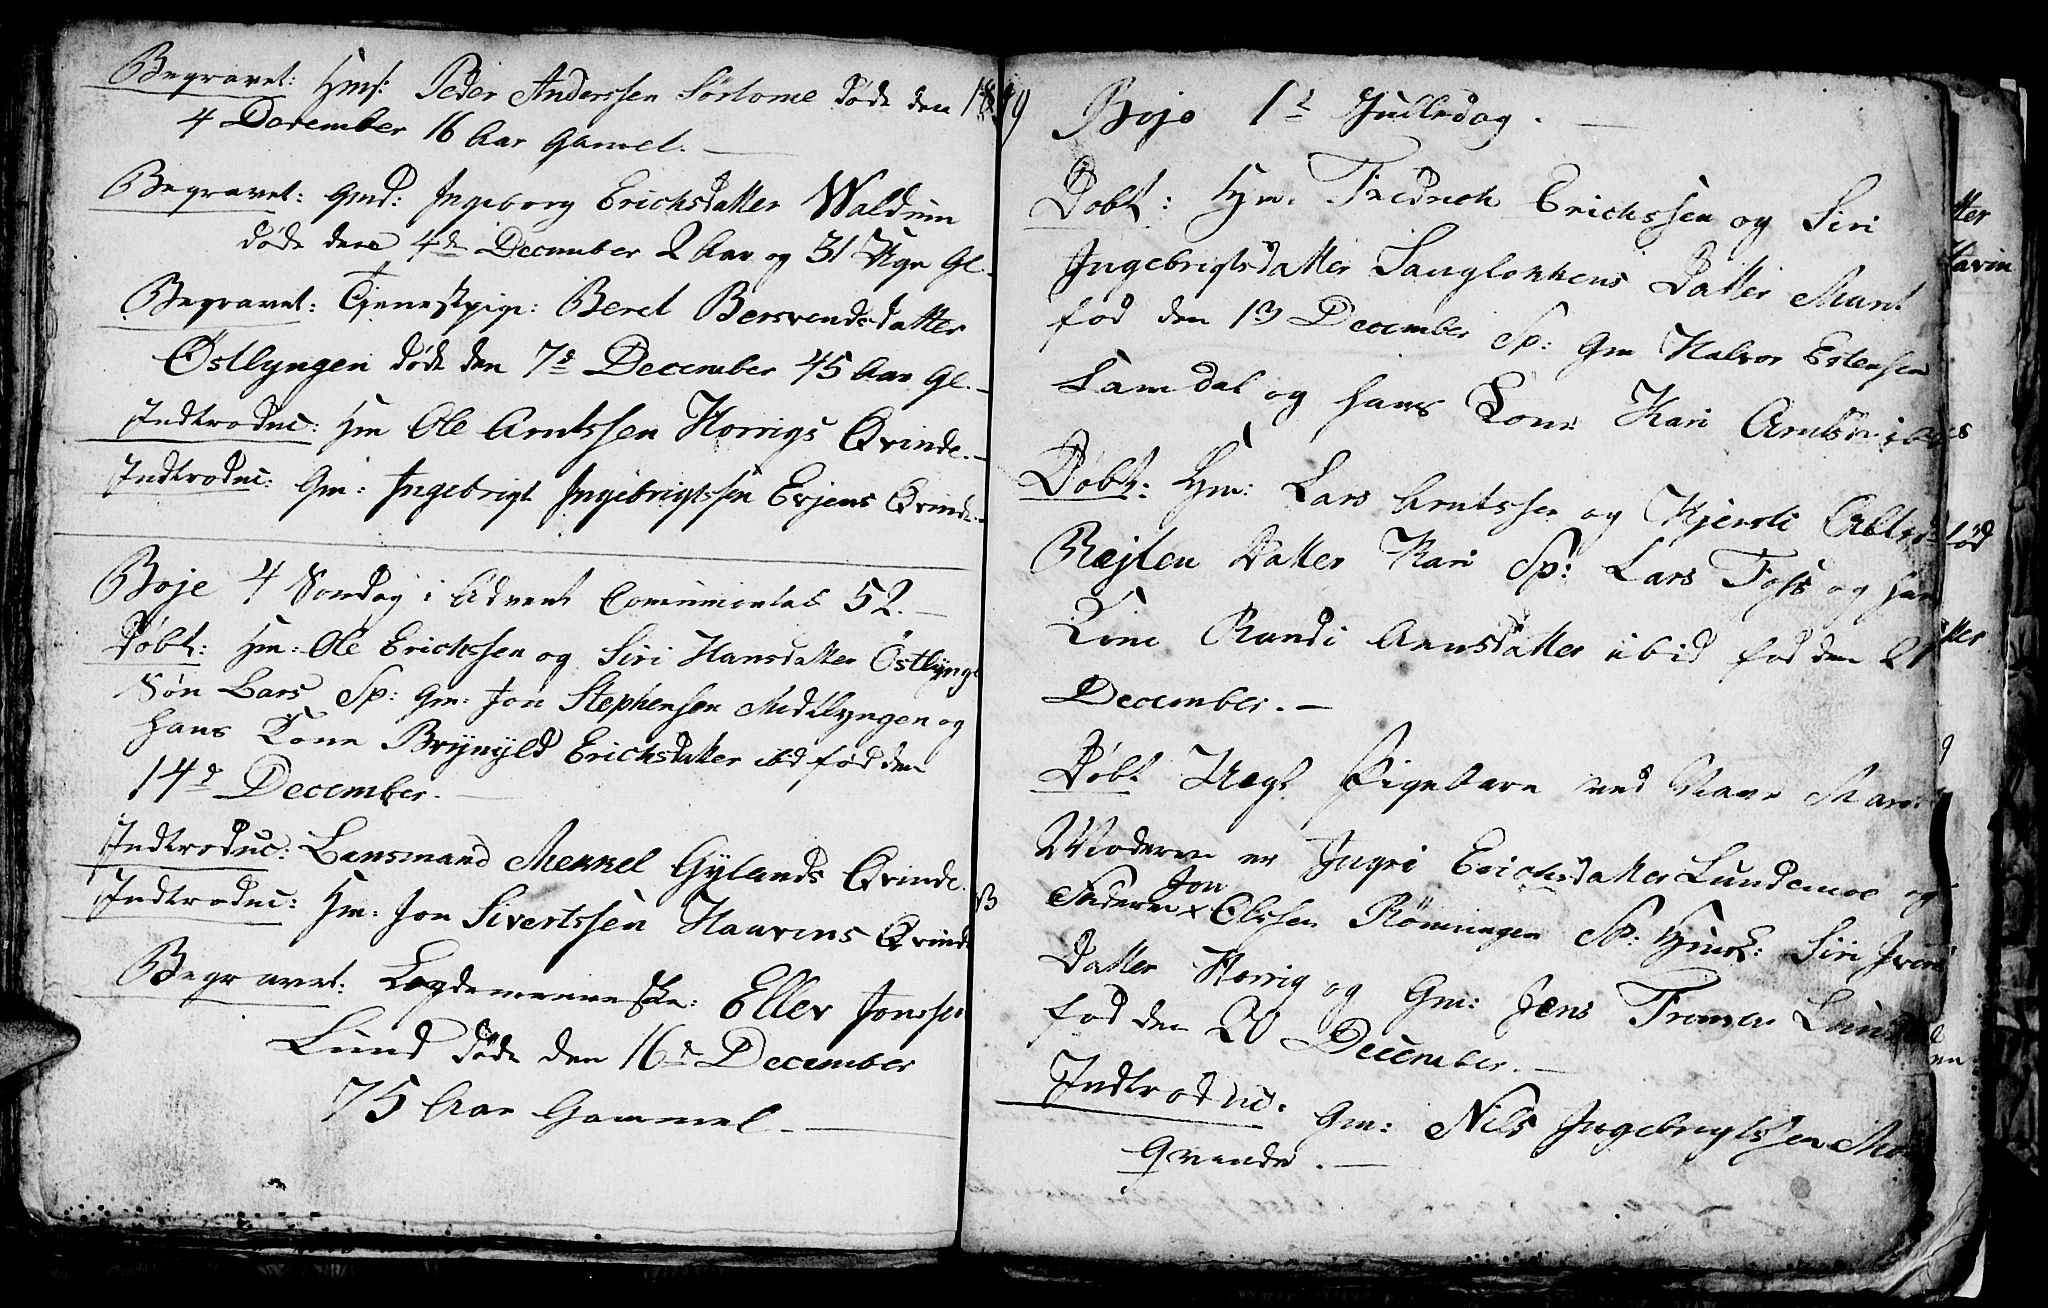 Begravet: Hmf: Peder Anderssen Sörlome døde den
4 December 16 Aar Gamel.
Begravet: Gmd: Ingeborg Erichsdatter Waldum
døde den 4de December 2 Aar og 31 Uger Gl.
Begravet: Tienestpige: Beret Bersvendsdatter
Östlyngen døde den 7de December 45 Aar Gl.
Indtroduc: Hm Ole Arntssen Horrigs Qvinde.
Indtroduc: Gm: Ingebrigt Ingebrigtssen Evjens Qvinde
Boje 4 Søndag i Advent Comunicontes 52.
Døbt: Hm: Ole Erichssen og Siri Hansdatter Östlynge
Søn Lars Sp: Gm: Jon Stephensen Midtlyngen og
hans Kone Brynyld Erichsdatter ibd fød den
14de December.
Indtroduc: Lansmand Merkel Gylands Qvinde
Indtroduc: Hm: Jon Sivertssen Haavens Qvinde
Begravet: Legdemenneske: Eller Jonsse
Lund døde den 16de December
75 Aar Gammel.
Boje 1t Julledag.
Døbt: Hm. Fredrich Erichssen og Siri
Ingebrigtsdatter Sauglokkens Datter Marit
fød den 13 December Sp: Gm Halvor Estensen
Lamdal og hans Kone Kari Arntsdr ibds
Døbt: Hm: Lars Arntssen og Kjersti Olsd fød
Røjten Datter Kari Sp: Lars Foss og hans
Kone Randi Arnsdatter ibid fød den 21
December.
Døbt Uegt Pigebarn med Navn Marit
Moderen er Ingri Erichsdatter Lundemoe og
Jon
Faderen x Olssen Rönningen Sp: Hmk: Siri Ivers
datter Horrig og Gm: Jens Lund
fød den 20 December.
Indtroduc: Gm: Nils Ingebrigtssen Moe
Qvinde.